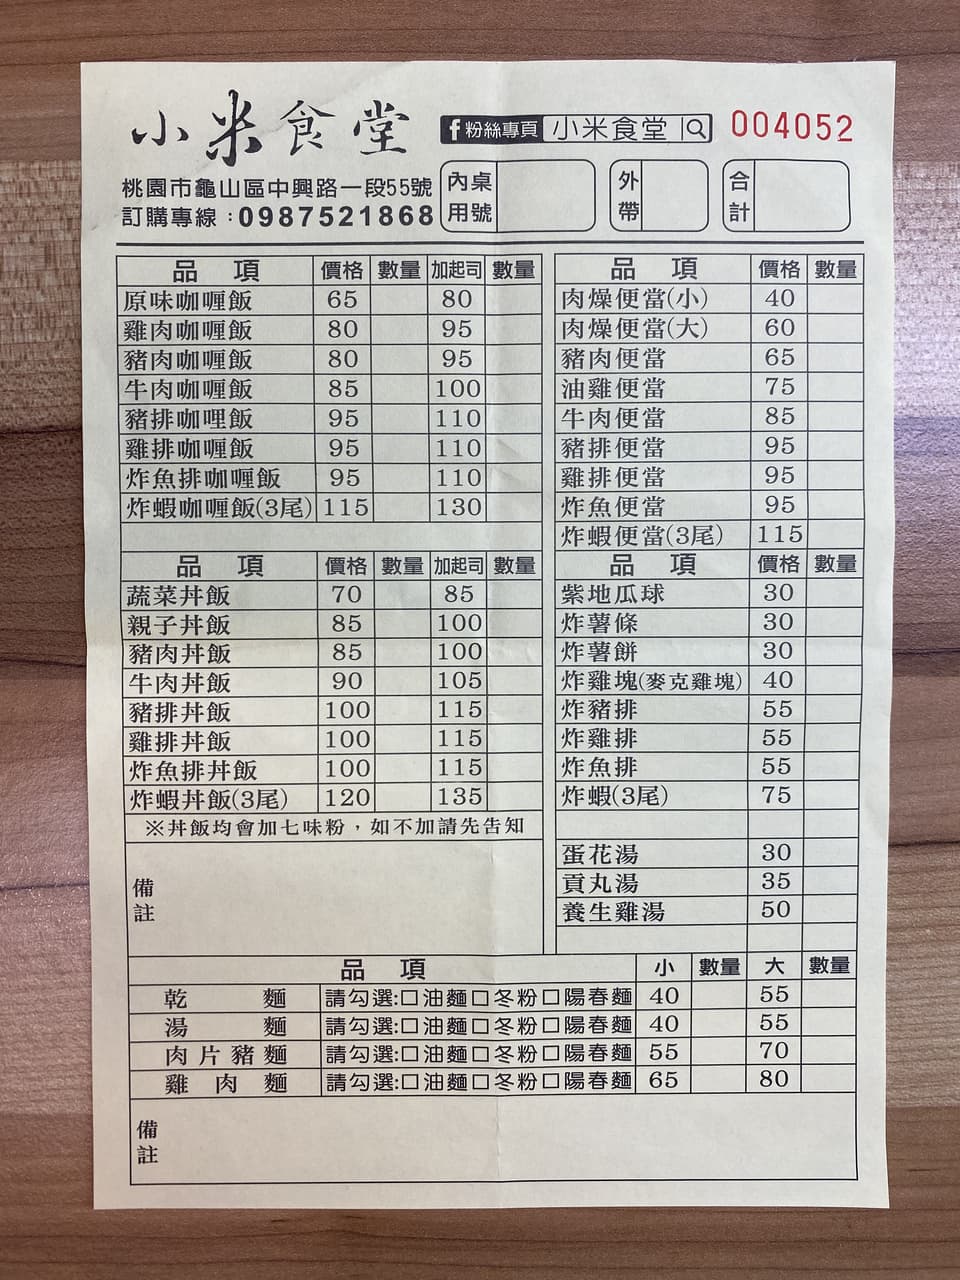 小米食堂
f粉絲專頁 小米食堂
004052
桃園市龜山區中興路一段55號
訂購專線：0987521868
內用 桌號
外帶
合計
品項 價格 數量 加起司 數量
原味咖喱飯 65 80
雞肉咖喱飯 80 95
豬肉咖喱飯 80 95
牛肉咖喱飯 85 100
豬排咖哩飯 95 110
雞排咖喱飯 95 110
炸魚排咖喱飯 95 110
炸蝦咖喱飯(3尾) 115 130
品項 價格 數量 加起司 數量
蔬菜丼飯 70 85
親子丼飯 85 100
豬肉丼飯 85 100
牛肉丼飯 90 105
豬排丼飯 100 115
雞排丼飯 100 115
炸魚排丼飯 100 115
炸蝦丼飯(3尾) 120 135
※丼飯均會加七味粉，如不加請先告知
備註
品項 價格 數量
肉燥便當(小) 40
肉燥便當(大) 60
豬肉便當 65
油雞便當 75
牛肉便當 85
豬排便當 95
雞排便當 95
炸魚便當 95
炸蝦便當(3尾) 115
品項 價格 數量
紫地瓜球 30
炸薯條 30
炸薯餅 30
炸雞塊(麥克雞塊) 40
炸豬排 55
炸雞排 55
炸魚排 55
炸蝦(3尾) 75
蛋花湯 30
貢丸湯 35
養生雞湯 50
品項 小 數量 大 數量
乾麵 請勾選:□油麵□冬粉□陽春麵 40 55
湯麵 請勾選:□油麵□冬粉□陽春麵 40 55
肉片豬麵 請勾選:□油麵□冬粉□陽春麵 55 70
雞肉麵 請勾選:□油麵□冬粉□陽春麵 65 80
備註